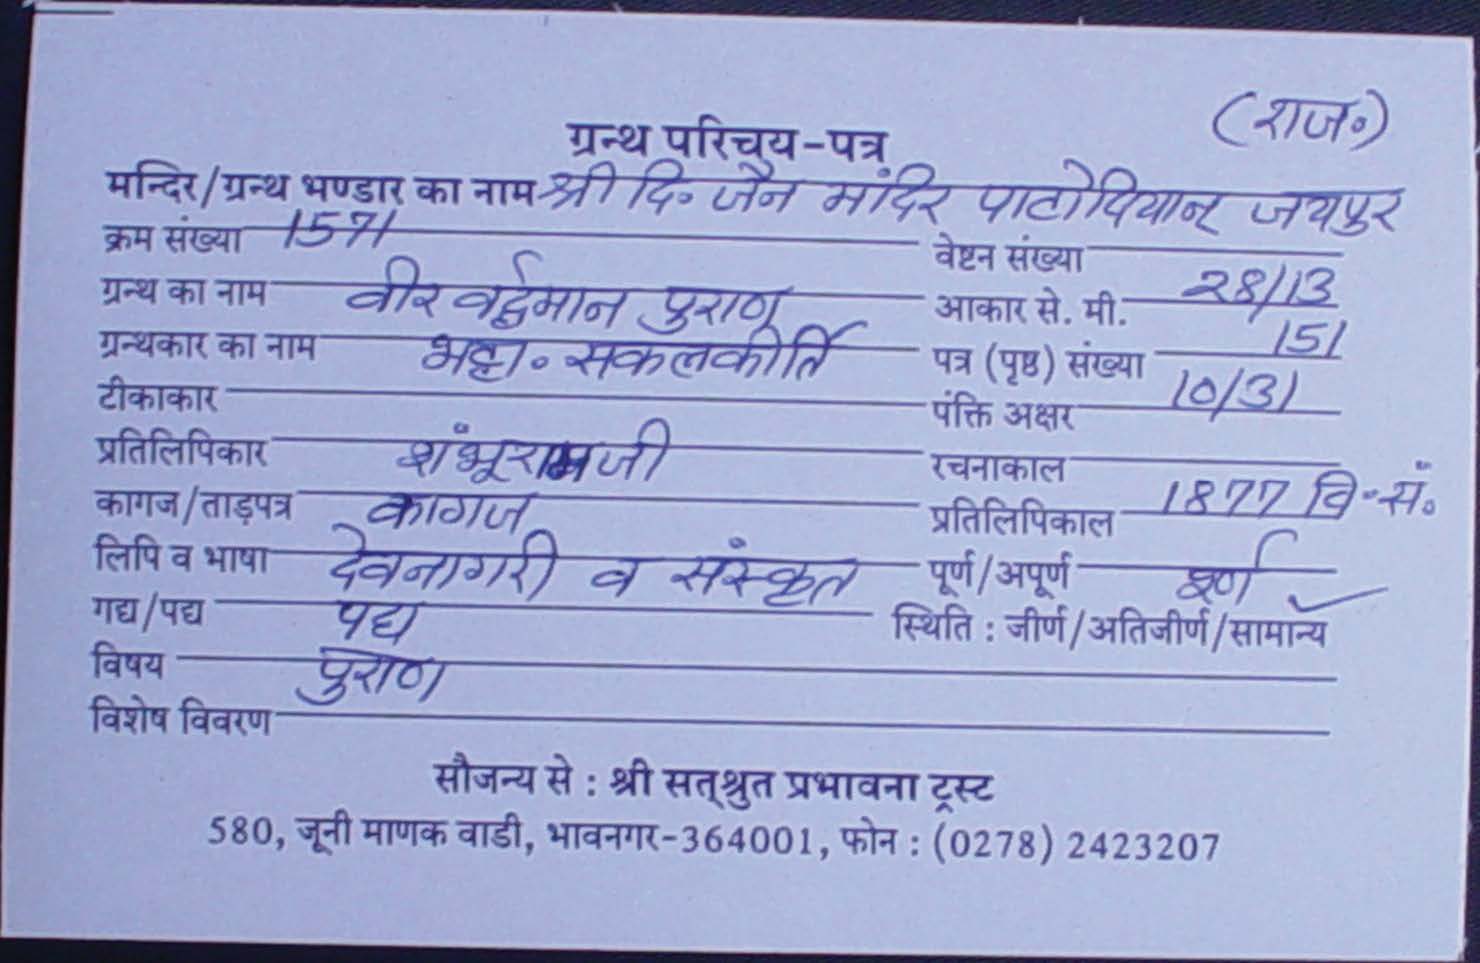 (राज०)
ग्रन्थ परिचय-पत्र
मन्दिर/ग्रन्थ भण्डार का नाम श्री दि० जैन मंदिर पाटोदियान् जयपुर
क्रम संख्या 1571 वेष्टन संख्या
ग्रन्थ का नाम वीर वर्द्धमान पुराण आकार से. मी. 28/13
ग्रन्थकार का नाम भट्टा० सकलकीर्ति पत्र (पृष्ठ) संख्या 151
टीकाकार पंक्ति अक्षर 10/31
प्रतिलिपिकार शंभूरामजी रचनाकाल
कागज/ताड़पत्र कागज प्रतिलिपिकाल 1877 वि० सं०
लिपि व भाषा देवनागरी व संस्कृत पूर्ण/अपूर्ण पूर्ण
गद्य/पद्य पद्य स्थिति : जीर्ण/अतिजीर्ण/सामान्य ✓
विषय पुराण
विशेष विवरण
सौजन्य से : श्री सत्‌श्रुत प्रभावना ट्रस्ट
580, जूनी माणक वाडी, भावनगर-364001, फोन : (0278) 2423207